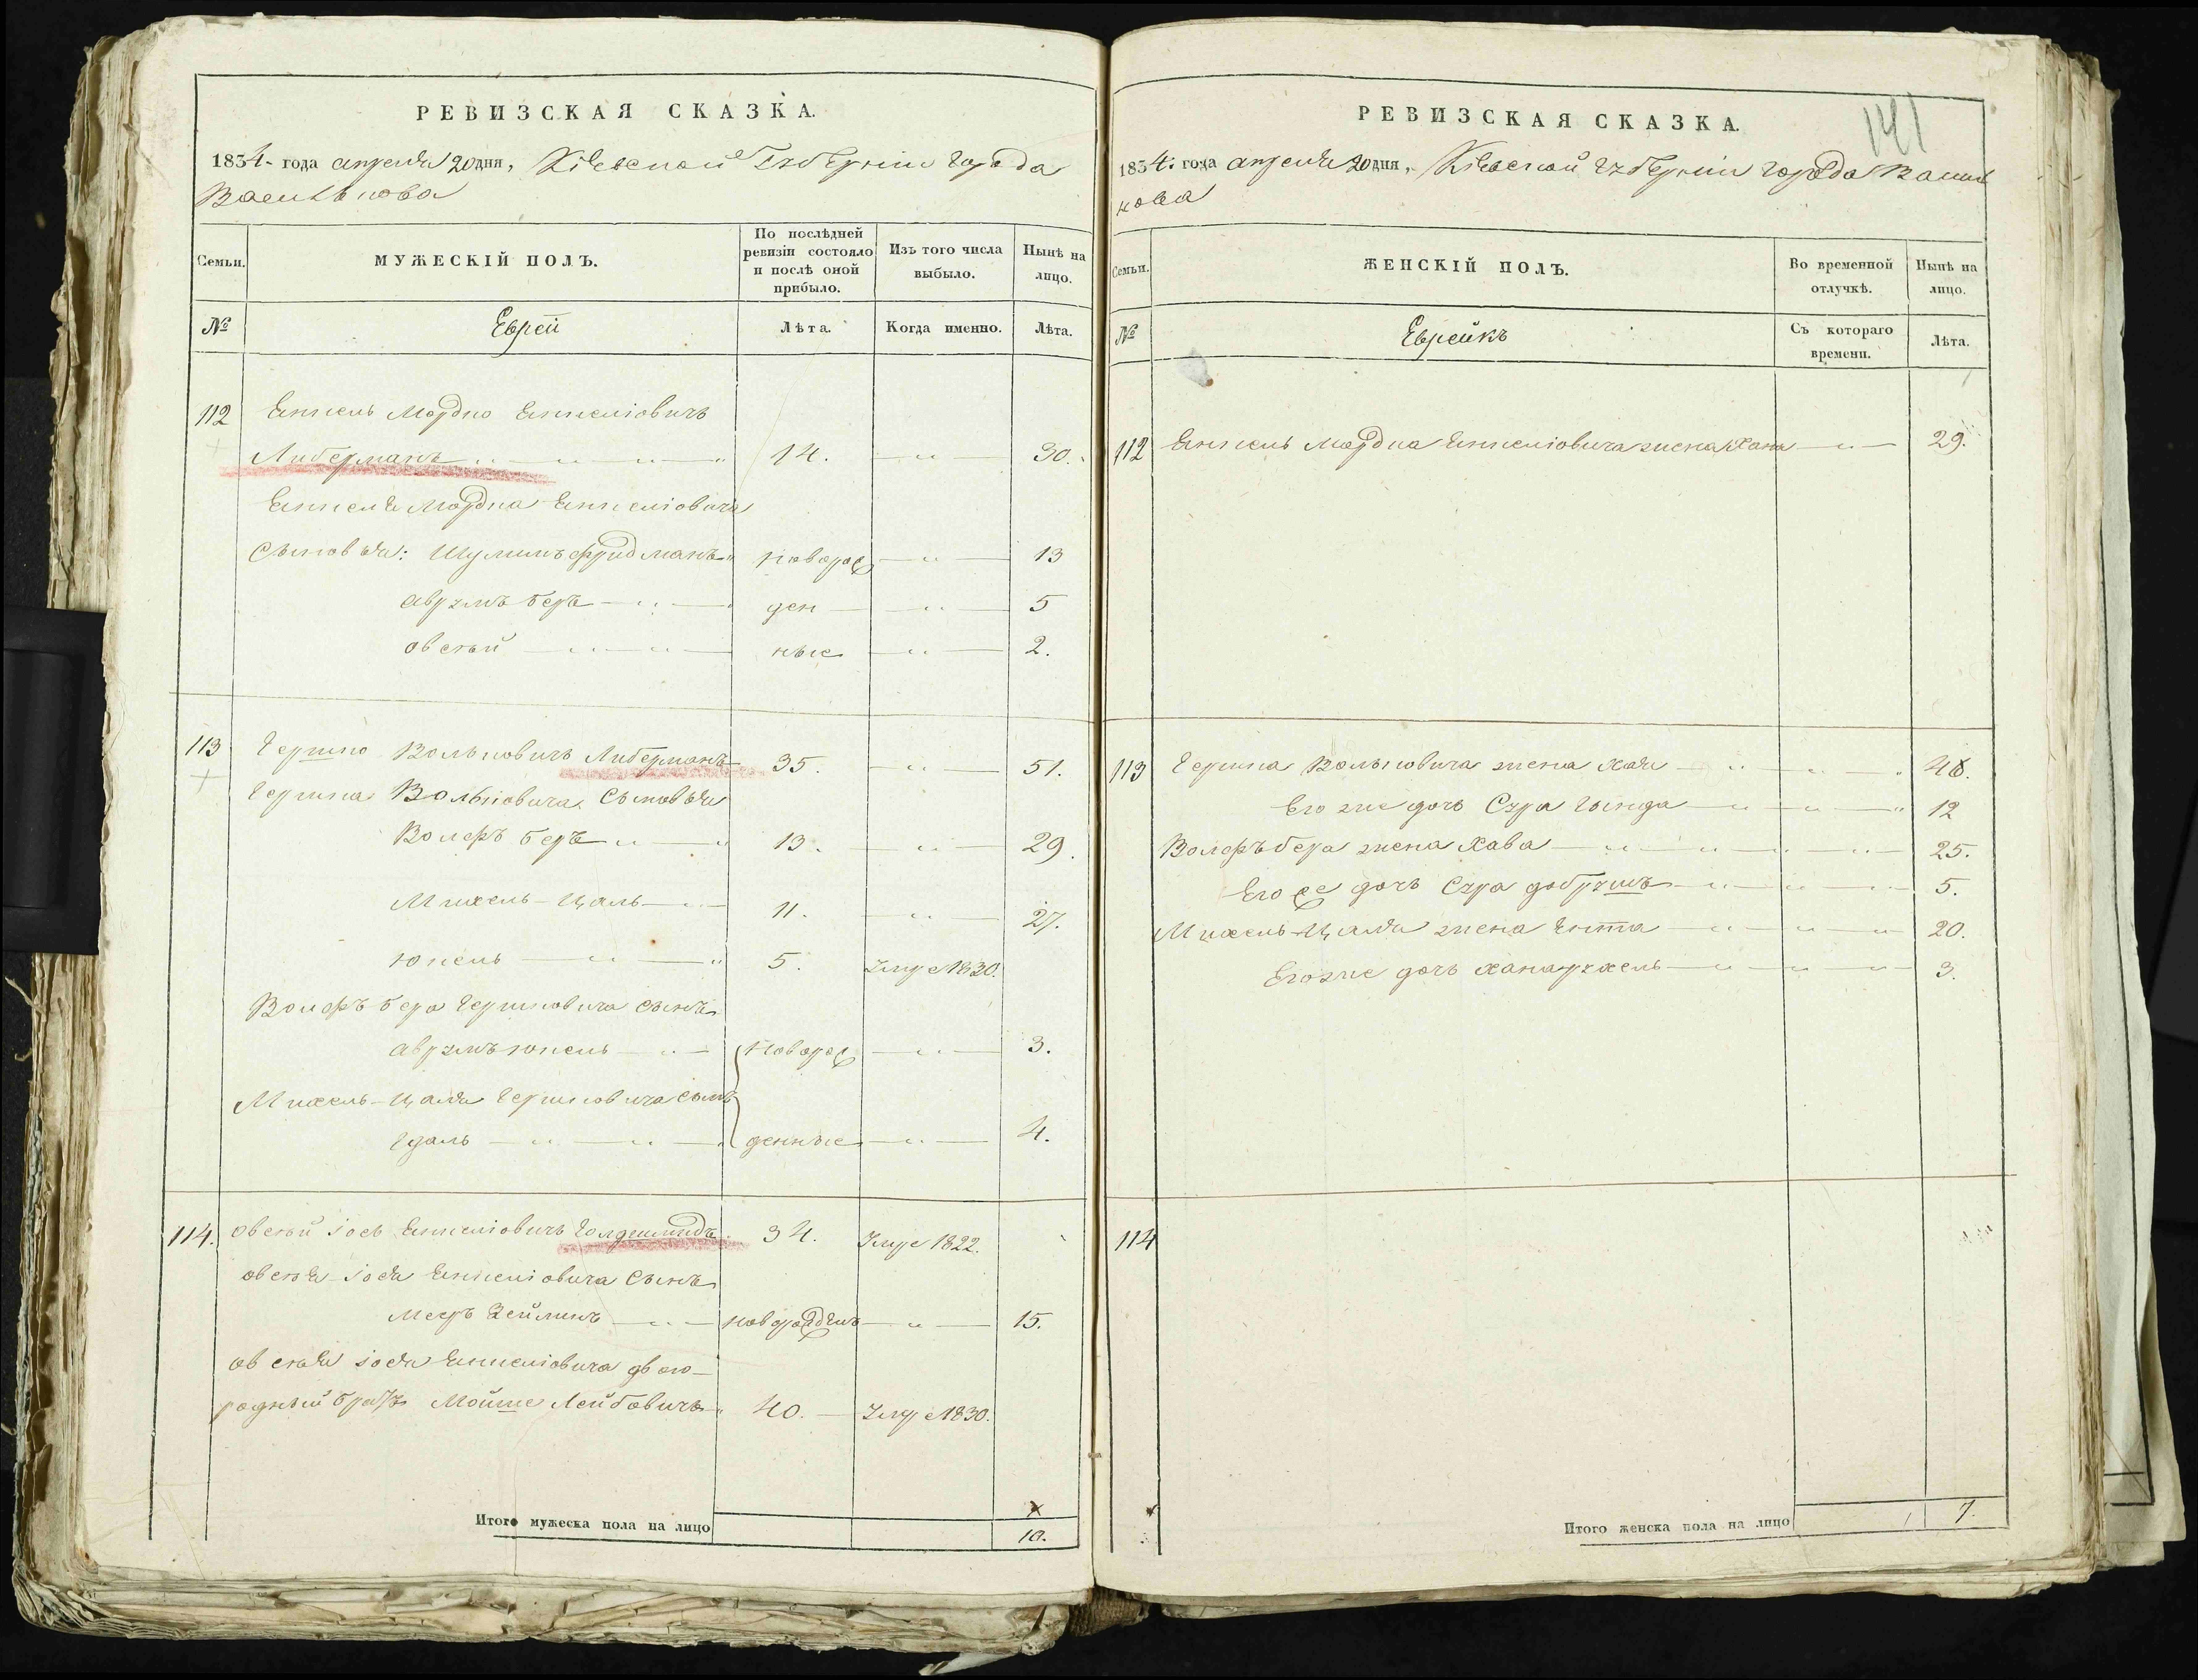 РЕВИЗСКАЯ СКАЗКА.
1834 года апреля 20 дня, Кіевской Губерніи города
Василькова
Семьи.
МУЖЕСКІЙ ПОЛЪ.
По послѣдней ревизіи состояло и послѣ оной прибыло.
Изъ того числа выбыло.
Нынѣ на лицо.
№
Еврей
Лѣта.
Когда именно.
Лѣта.
112 Янкель Мордко Янкеліовичъ
Либерманъ 14. 30.
Янкеля Мордка Янкеліовича
Сыновья: Шулимъ Фридманъ новорож 13
Аврумъ Беръ ден 5
Овсѣй ные 2.
113 Гершко Вольковичъ Либерманъ 35. 51.
Гершка Вольковича Сыновья
Волфъ Беръ 13. 29.
Михель-Цаль 11. 27.
Юкель 5. Умре 1830.
Волфъ Бера Гершковича Сынъ
Аврумъ Юкель новорож 3.
Михель-Цаля Гершковича Сынъ
Удаль денные 4.
114. Овсѣй Іось Янкеліовичъ Голдшмидъ 34. Умре 1822.
Овсѣя Іося Янкеліовича Сынъ
Меръ Зейликъ новорожденъ 15.
Овсѣя Іося Янкеліовича двою-
родный братъ Мойше Лейбовичъ 40. Умре 1830.
Итого мужеска пола на лицо 10.
РЕВИЗСКАЯ СКАЗКА.
141
1834 года апреля 20 дня, Кіевской губерніи города Василь
кова
Семьи.
ЖЕНСКІЙ ПОЛЪ.
Во временной отлучкѣ.
Нынѣ на лицо.
№
Еврейкъ
Съ котораго времени.
Лѣта.
112 Янкель Мордка Янкеліовича жена Хана 29.
113 Гершка Вольковича жена Хая 48.
Его же дочь Сура Гинда 12
Волфъ Бера жена Хава 25.
Его же дочь Сура Добрушъ 5.
Михель-Цаля жена Ента 20.
Его же дочь Хана Рухель 3.
114
Итого женска пола на лицо 7.